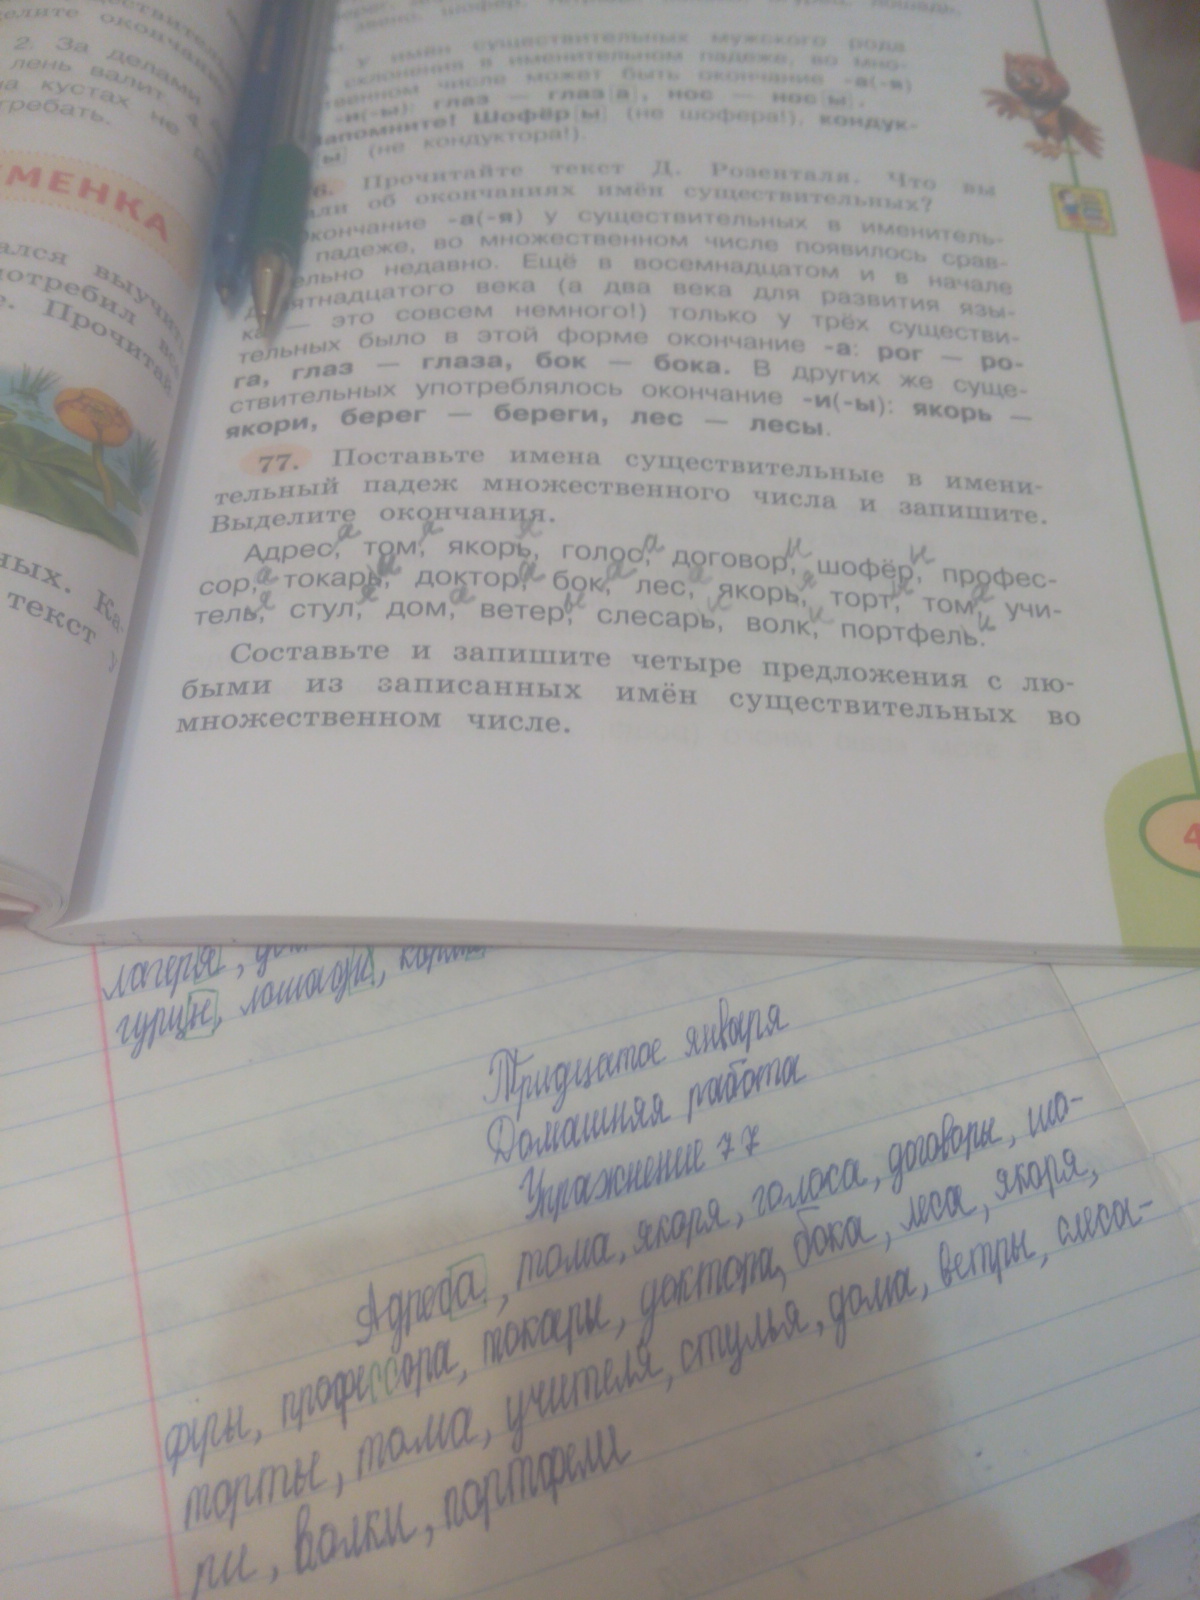 2. За делами
лень валит. 4
на кустах не
гребать.
МЕНКА
ался выучить
потребил
е. Прочитай
ных. Ка-
текст у
у имён существительных мужского рода
склонения в именительном падеже, во мно-
ственном числе может быть окончание -а(-я)
-и(-ы): глаз — глаза, нос — носы.
Запомните! Шофёры (не шофера!), кондук-
ы (не кондуктора!).
6. Прочитайте текст Д. Розенталя. Что вы
али об окончаниях имён существительных?
кончание -а(-я) у существительных в именитель-
падеже, во множественном числе появилось срав-
ельно недавно. Ещё в восемнадцатом и в начале
ятнадцатого века (а два века для развития язы-
ка — это совсем немного!) только у трёх существи-
тельных было в этой форме окончание -а: рог — ро-
га, глаз — глаза, бок — бока. В других же суще-
ствительных употреблялось окончание -и(-ы): якорь —
якори, берег — береги, лес — лесы.
77. Поставьте имена существительные в имени-
тельный падеж множественного числа и запишите.
Выделите окончания.
Адрес, том, якорь, голос, договор, шофёр, профес-
сор, токарь, доктор, бок, лес, якорь, торт, том, учи-
тель, стул, дом, ветер, слесарь, волк, портфель.
Составьте и запишите четыре предложения с лю-
быми из записанных имён существительных во
множественном числе.
4
лагеря,
гурцы, лошади,
Тридцатое января
Домашняя работа
Упражнение 77
Адреса, тома, якоря, голоса, договоры, шо-
фёры, профессора, токари, доктора, бока, леса, якоря,
торты, тома, учителя, стулья, дома, ветры, слеса-
ри, волки, портфели